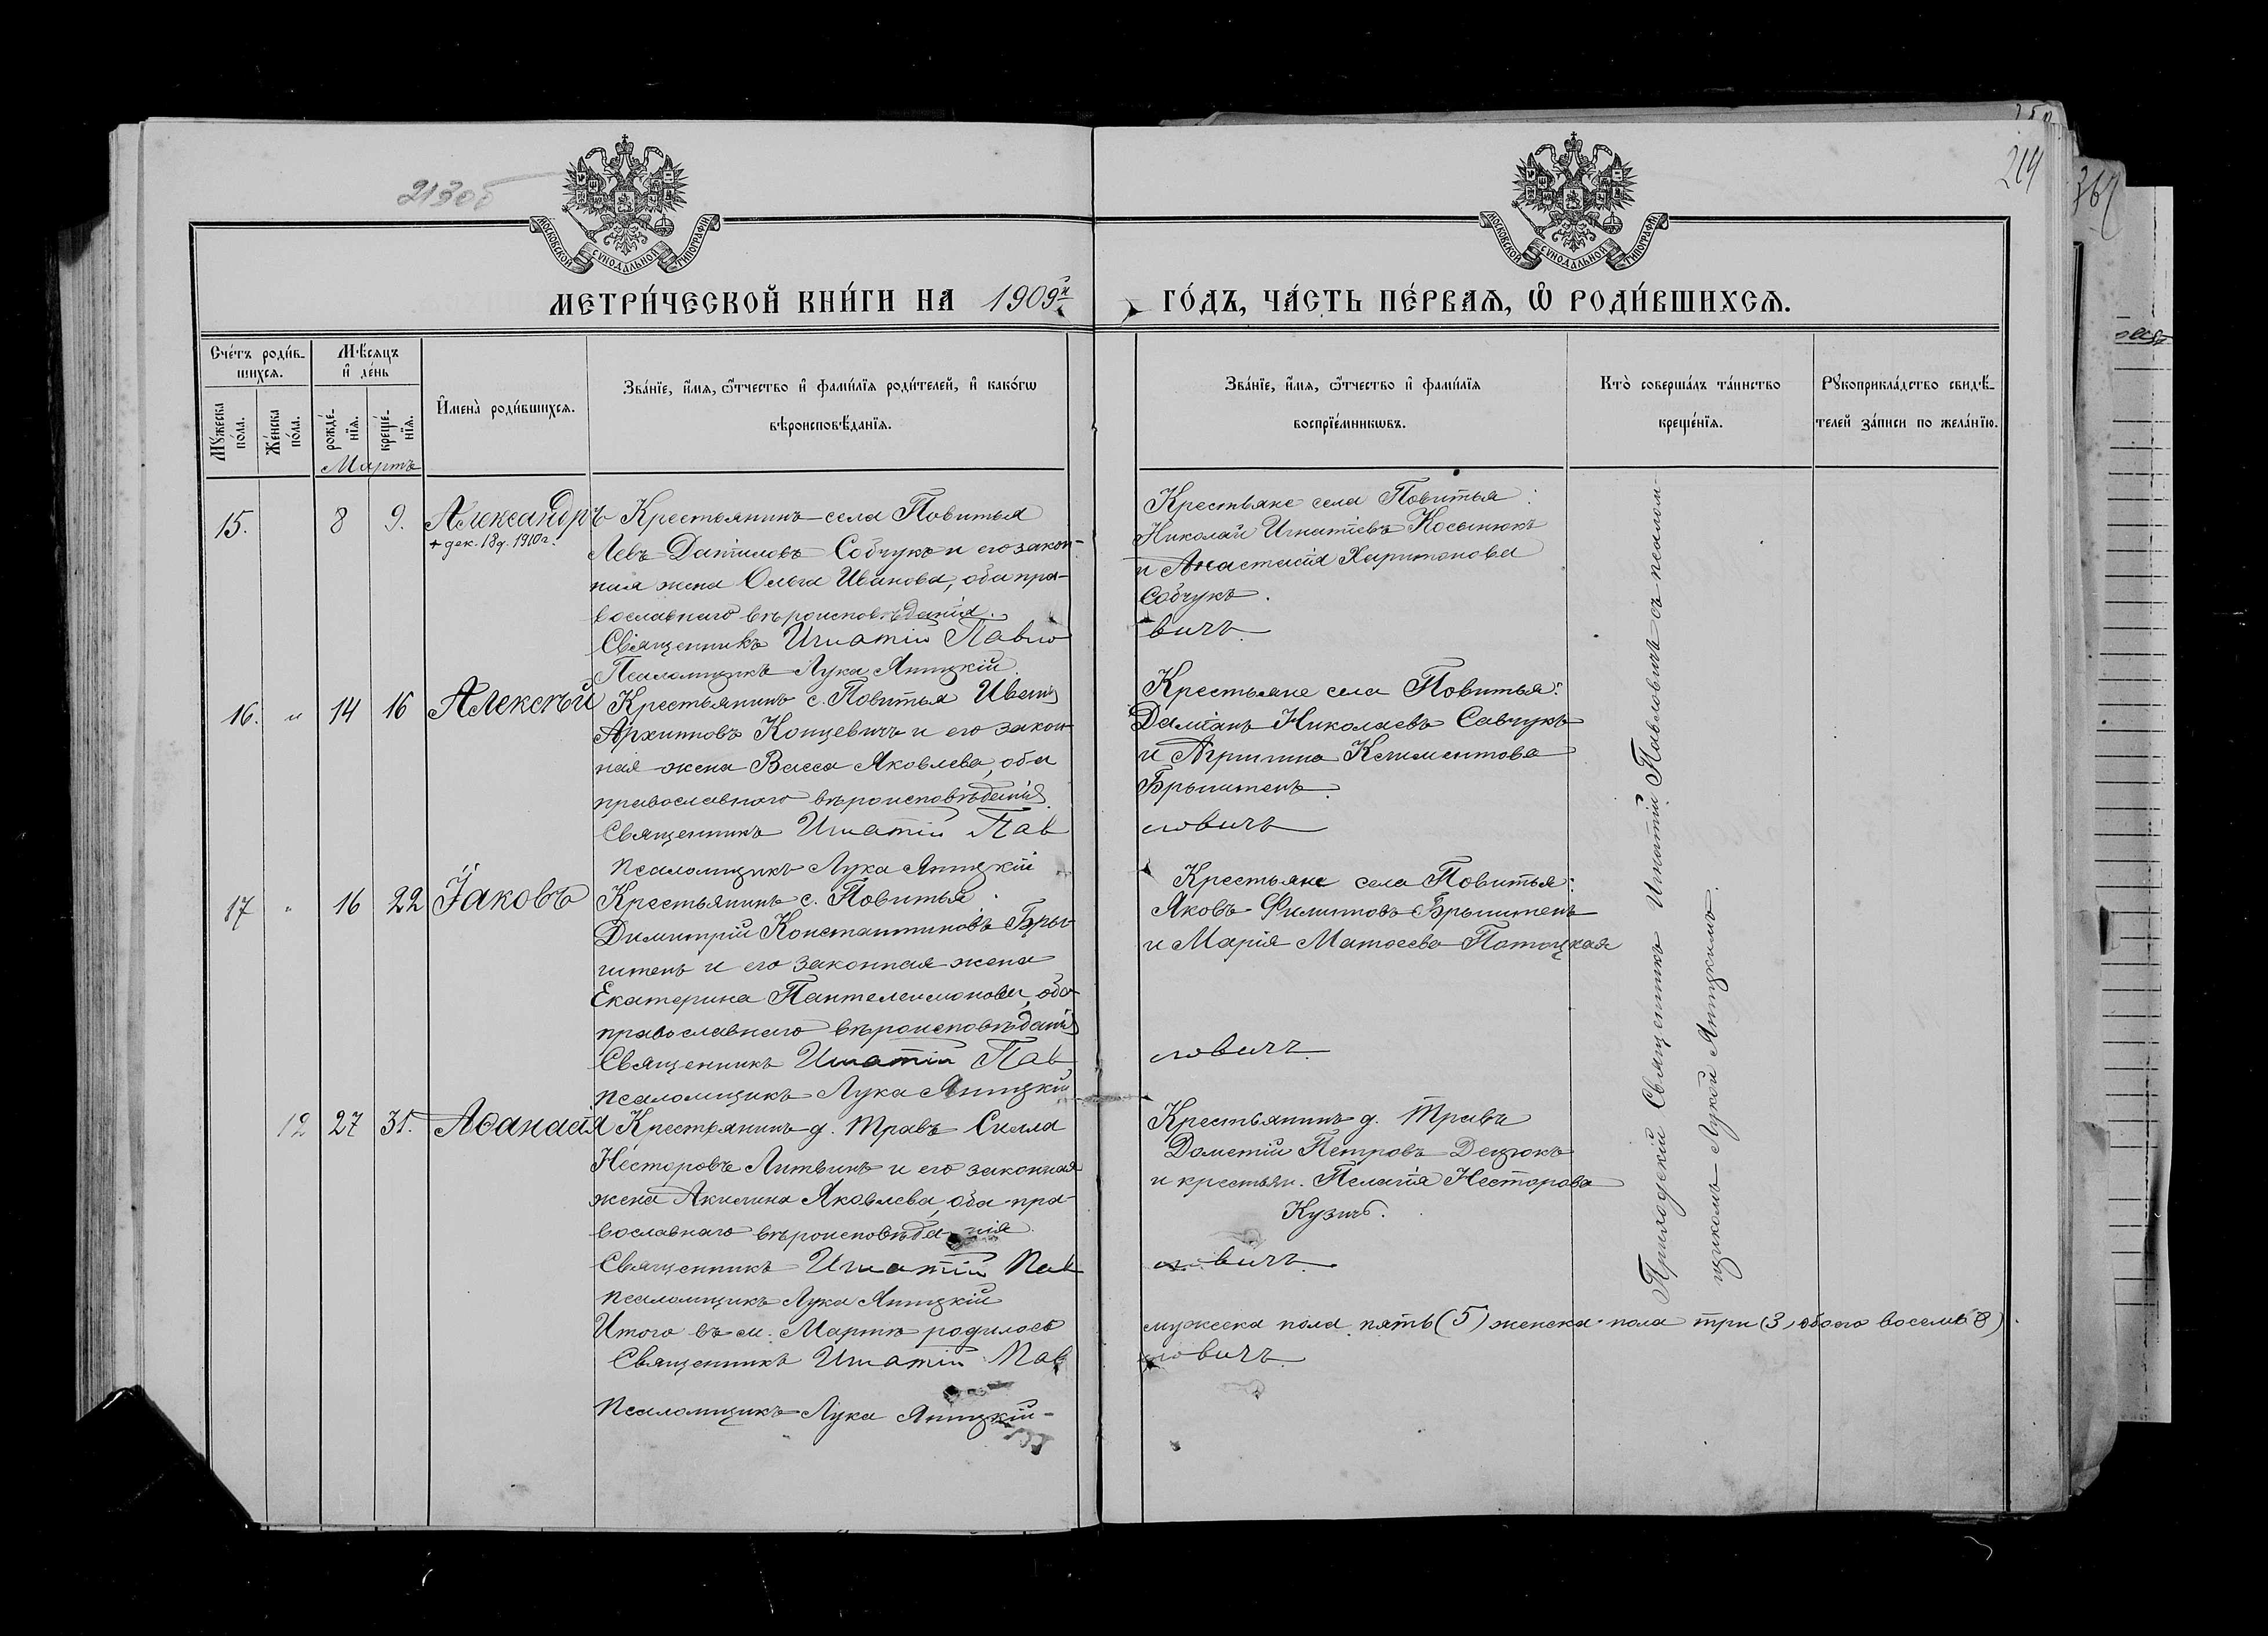 213об
214
МОСКОВСКОЙ СУНОДАЛЬНОЙ ТИПОГРАФІИ
МОСКОВСКОЙ СУНОДАЛЬНОЙ ТИПОГРАФІИ
МЕТРИ́ЧЕСКОЙ КНИ́ГИ НА 1909й
ГО́ДЪ, ЧА́СТЬ ПЕ́РВАѦ, Ѡ РОДИ́ВШИХСѦ.
Сче́тъ роди́в-
шихсѧ.
Мꙋ́жеска по́ла.
Же́нска по́ла.
Мѣ́сѧцъ
и҆ де́нь
рожде́-
нїѧ.
креще́-
нїѧ.
Мартъ
И҆мена̀ роди́вшихсѧ.
Зва́нїе, и҆́мѧ, ѻ҆́тчество и҆ фами́лїѧ роди́телей, и҆ како́гѡ
вѣроисповѣ́данїѧ.
Зва́нїе, и҆́мѧ, ѻ҆́тчество и҆ фами́лїѧ
воспрїе́мникѡвъ.
Кто̀ соверша́лъ та́инство
креще́нїѧ.
Рꙋкоприкла́дство свидѣ́-
телей за́писи по жела́нїю.
15.
8
9.
Александръ
+ дек. 18д. 1910г.
Крестьянинъ села Повитья
Левъ Даниловъ Собчукъ и его закон-
ная жена Ольга Иванова, оба пра-
вославнаго вѣроисповѣданія.
Священникъ Игнатій Павло
Псаломщикъ Лука
Крестьяне села Повитья:
Николай Игнатіевъ Косынюкъ
и Анастасія Харитонова
Собчукъ.
вичъ.
16.
"
14
16
Алексѣй
Крестьянинъ с. Повитья Иванъ
Архиповъ Концевичъ и его закон-
ная жена Васса Яковлева, оба
православнаго вѣроисповѣданія.
Священникъ Игнатій Пав
Псаломщикъ Лука
Крестьяне села Повитья:
Даміанъ Николаевъ Савчукъ
и Агрипина Климентова
Брышитень.
ловичъ
17
"
16
22
Іаковъ
Крестьянинъ с. Повитья
Димитрій Константиновъ Бры-
шитень и его законная жена
Екатерина Пантелеимонова, оба
православнаго вѣроисповѣданія
Священникъ Игнатій Пав
Псаломщикъ Лука
Крестьяне села Повитья:
Яковъ Филипповъ Брышитень
и Марія Матѳеева Потоцкая
ловичъ.
12
27
31.
Аѳанасія
Крестьянинъ д. Травъ Силла
Несторовъ Литвинъ и его законная
жена Акилина Яковлева, оба пра-
вославнаго вѣроисповѣданія.
Священникъ Игнатій Пав
Псаломщикъ Лука
Крестьянинъ д. Травъ
Дометій Петровъ Децюкъ
и крестьян. Пелагія Несторова
Кузичъ.
ловичъ.
Итого въ м. Мартѣ родилось
мужеска пола пять (5) женска пола три (3) обоего восемь (8).
Священникъ Игнатій Пав
ловичъ.
Псаломщикъ Лука
Приходскій Священникъ Игнатій Павловичъ съ псалом-
щикомъ Лукой